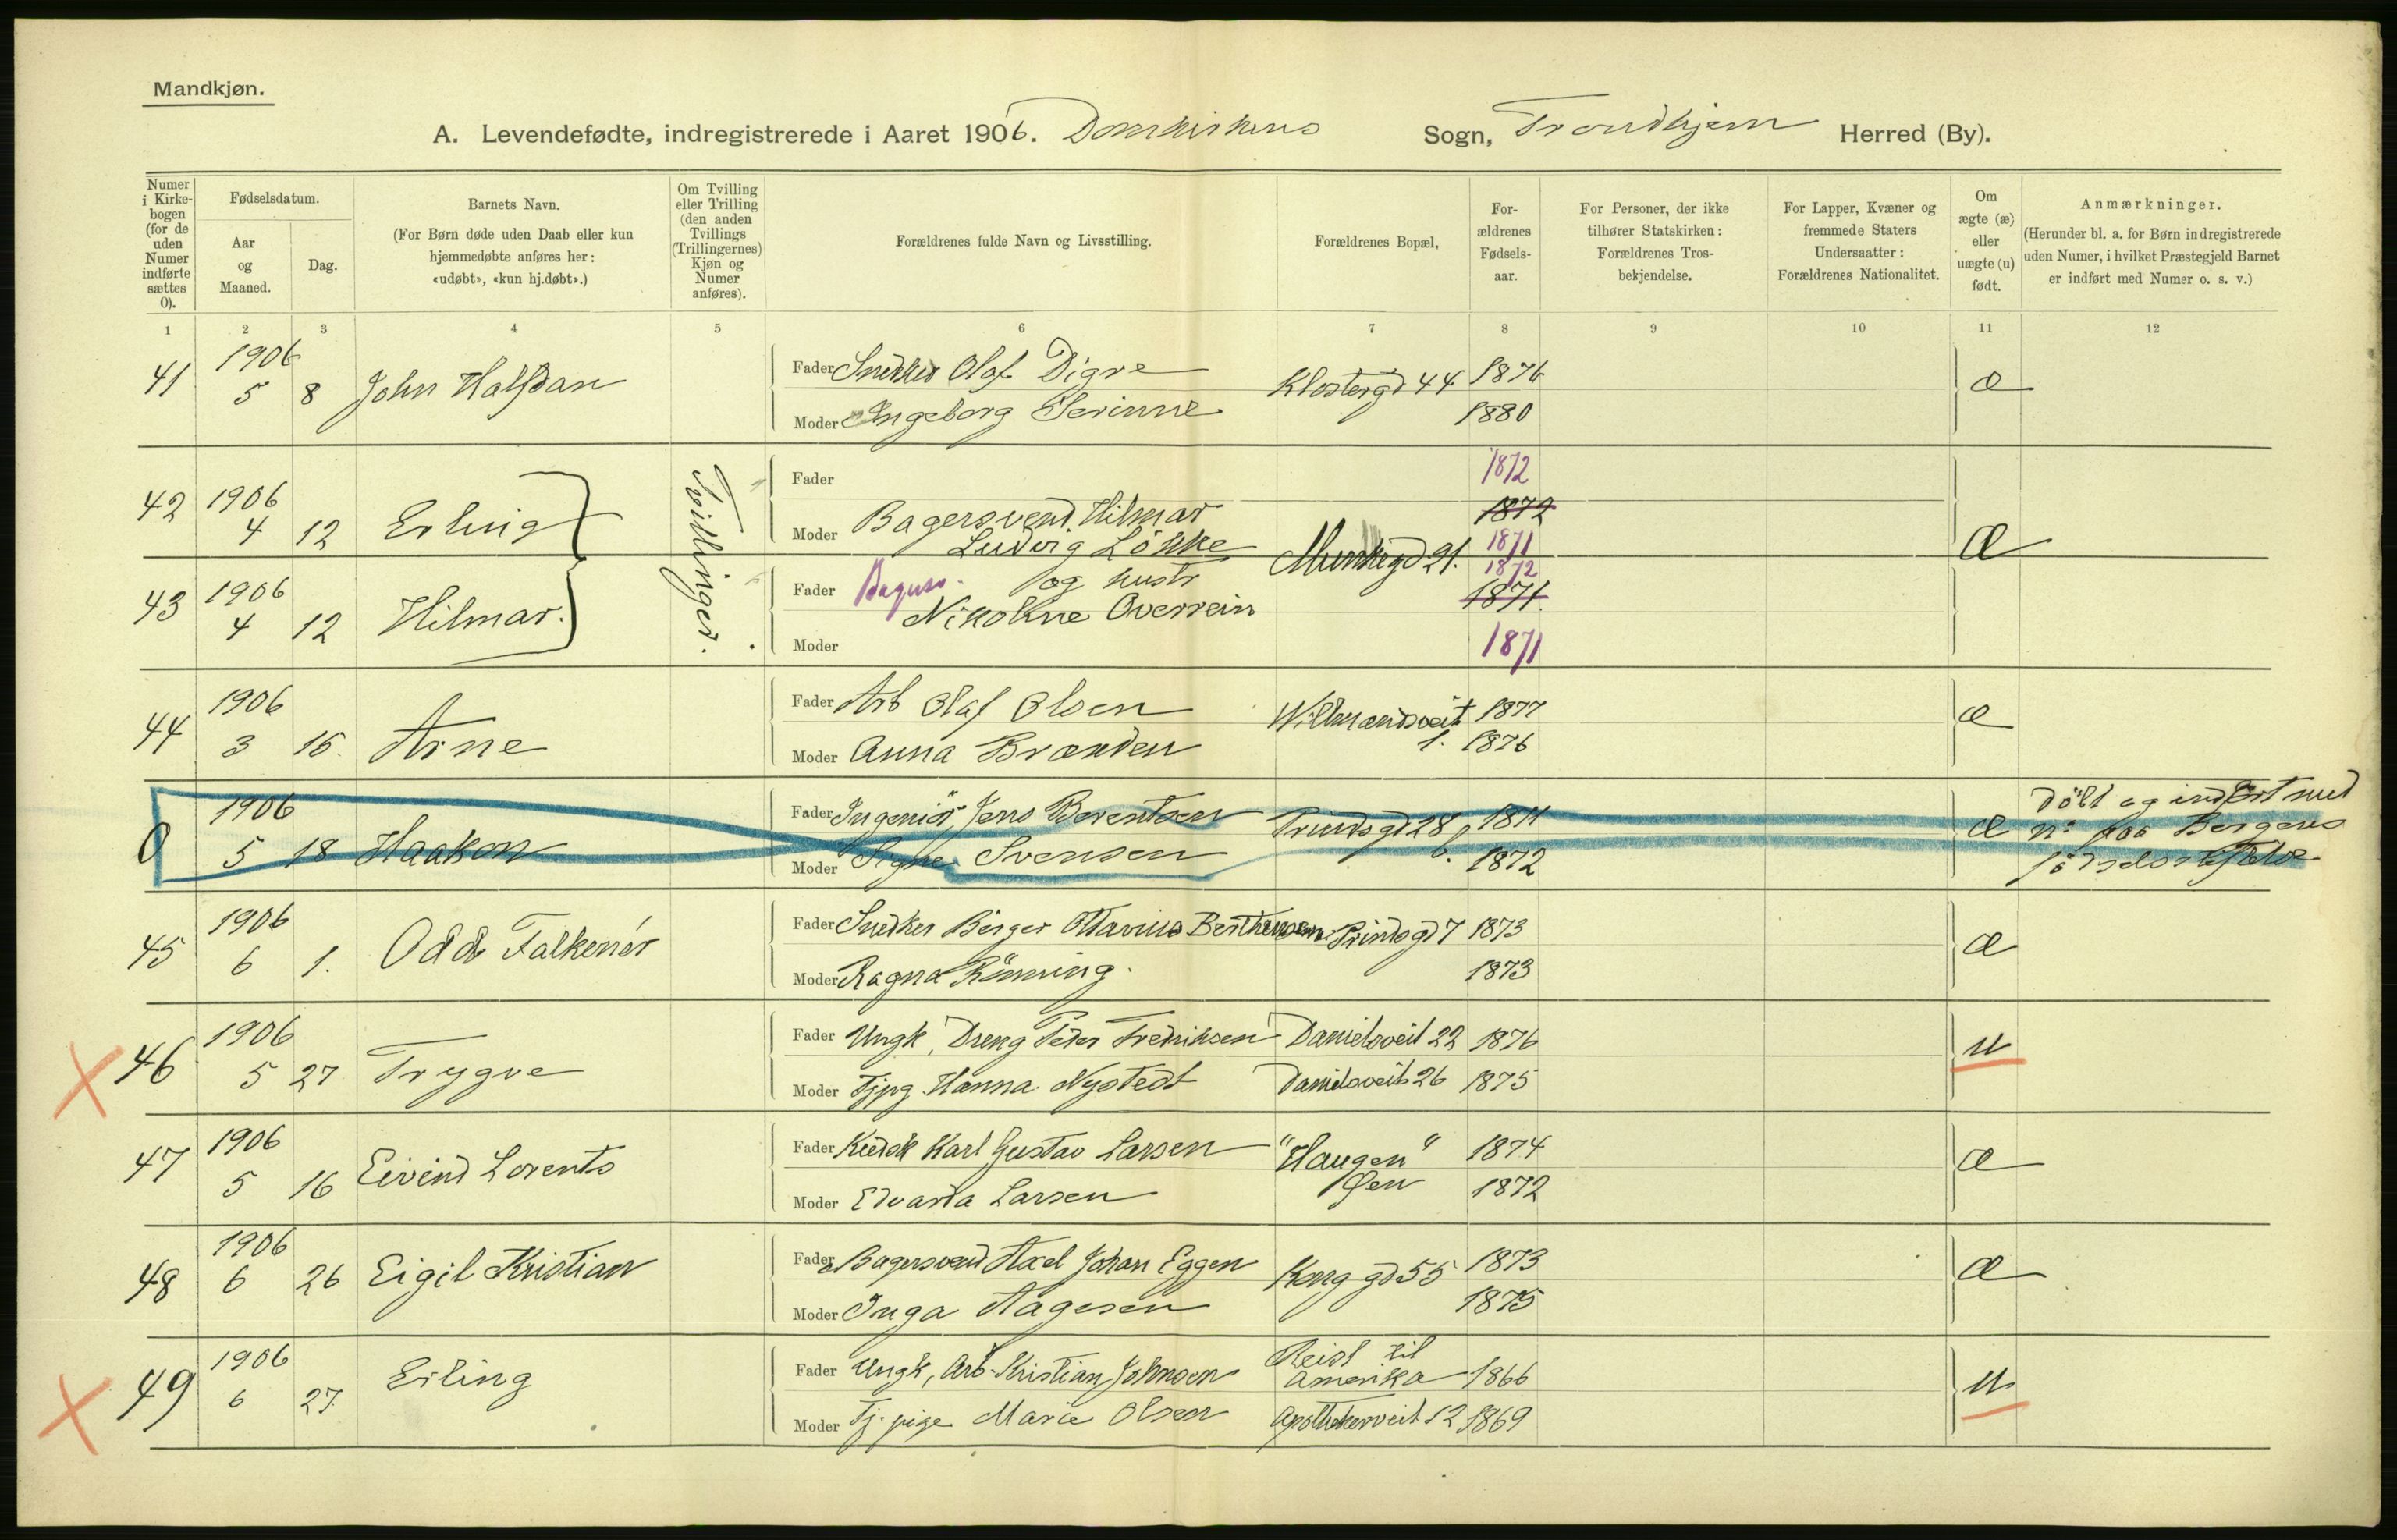 Mandkjøn.
A. Levendefødte, indregistrerede i Aaret 1906. Domkirkens Sogn, Trondhjem Herred (By).
Numer i Kirkebogen (for de uden Numer indførte sættes 0).
Fødselsdatum.
Aar og Maaned.
Dag.
Barnets Navn.
(For Børn døde uden Daab eller kun hjemmedøbte anføres her: «udøbt», «kun hj.døbt».)
Om Tvilling eller Trilling (den anden Tvillings (Trillingernes) Kjøn og Numer anføres).
Forældrenes fulde Navn og Livsstilling.
Forældrenes Bopæl,
Forældrenes Fødselsaar.
For Personer, der ikke tilhører Statskirken: Forældrenes Trosbekjendelse.
For Lapper, Kvæner og fremmede Staters Undersaatter: Forældrenes Nationalitet.
Om ægte (æ) eller uægte (u) født.
Anmærkninger.
(Herunder bl. a. for Børn indregistrerede uden Numer, i hvilket Præstegjeld Barnet er indført med Numer o. s. v.)
1 2 3 4 5 6 7 8 9 10 11 12
41 1906 5 8 John Halfdan
Fader Snedker Olaf Digre Klostergd 44 1876 æ
Moder Ingeborg Serinne 1880
42 1906 4 12 Erling Tvillinger.
Fader 1872
Moder Bagersvend Hilmar 1872
Ludvig Lökke 1871
Munkegd 21. æ
43 1906 4 12 Hilmar.
Fader og hustr 1872
1871
Nikoline Overrein
Moder 1871
44 1906 3 15 Arne
Fader Arb Olaf Olsen Willmandsveit 1. 1877 æ
Moder Anna Brænden 1876
0 1906 5 18 Haakon
Fader Ingeniör Jens Berentsen 28 1871 æ
Moder Signe Svensen 1872
Döbt og indfört med
n: Bergens
45 1906 6 1. Odd Falkenér
Fader Snedker Birger Ottavius Berthensen Prindsgd 7 1873 æ
Moder Ragna Rönning. 1873
46 1906 5 27 Trygve
Fader Ungk, Dreng Peter Fredriksen Danielsveit 22 1876 u
Moder Tjpg. Hanna Nystedt Danielsveit 26 1875
47 1906 5 16 Eivind Lorents
Fader Kudsk Karl Gustav Larsen "Haugen" 1874 æ
Moder Edvarda Larsen Øen 1872
48 1906 6 26 Eigil Kristian
Fader Bagersvend Axel Johan Eggen Kong gd 55 1873 æ
Moder Inga Aagesen 1875
49 1906 6 27. Erling
Fader Ungk, Arb. Kristian Johnsen Reist til Amerika 1866 u
Moder Tj. pige Marie Olsen Apothekerveit 12 1869